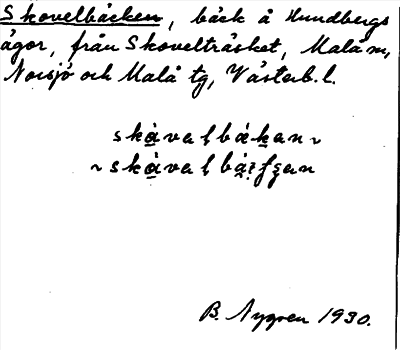 Skovelbäcken, bäck å Hundbergs
ägor, från Skovelträsket, Malå m,
Norsjö och Malå tg, Västerb. l.
B. Nygren 1930.